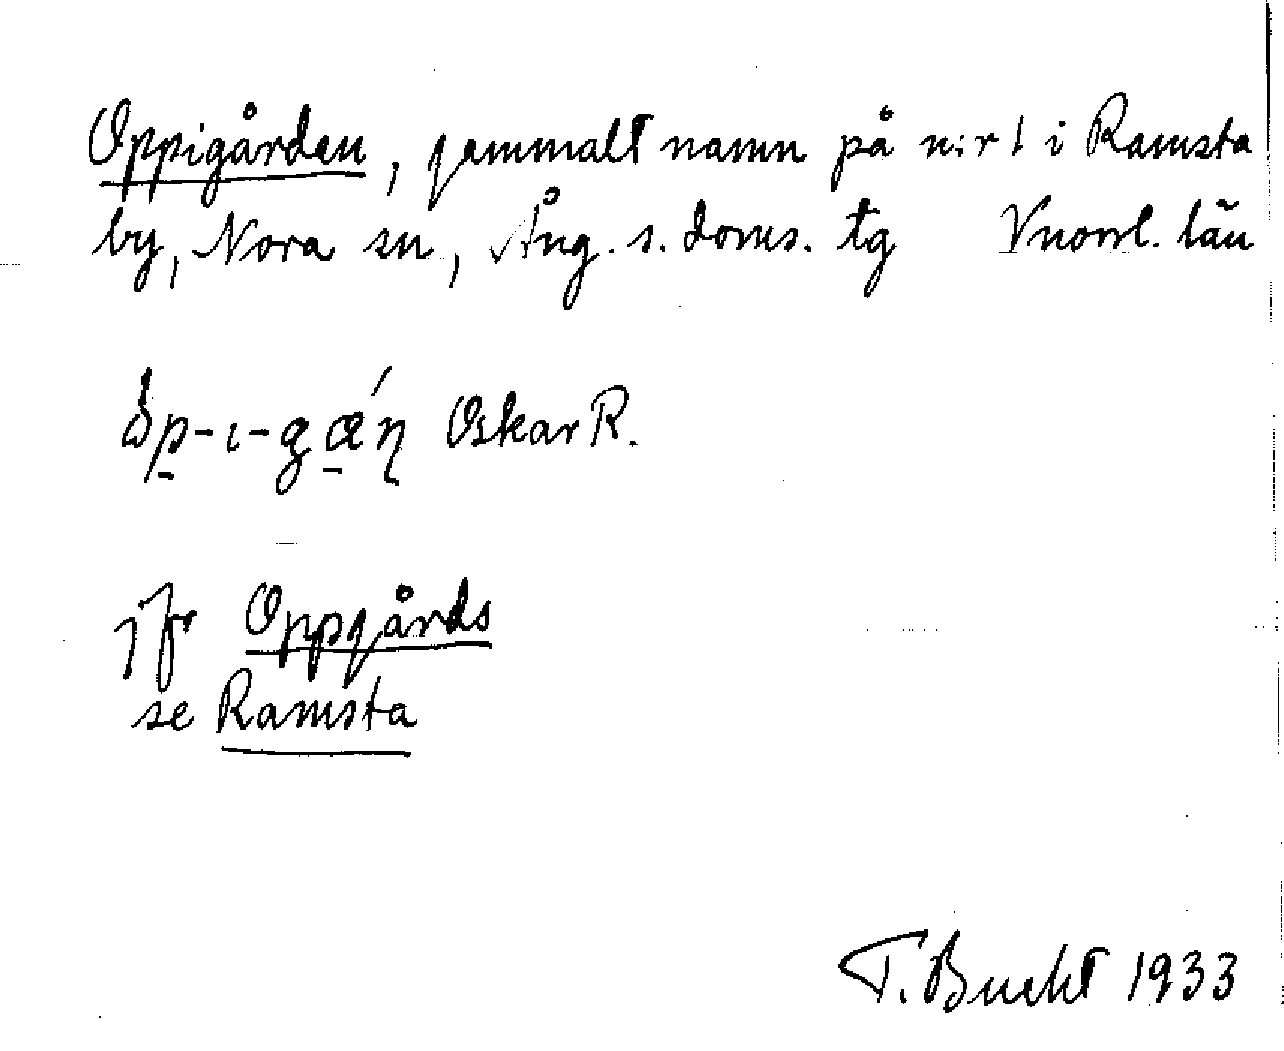 Oppigården, gammalt namn på n:r 1 i Ramsta
by, Nora sn, Ång. s. doms. tg Vnorrl. län
Oskar R.
jfr Oppgårds
se Ramsta
T. Bucht 1933